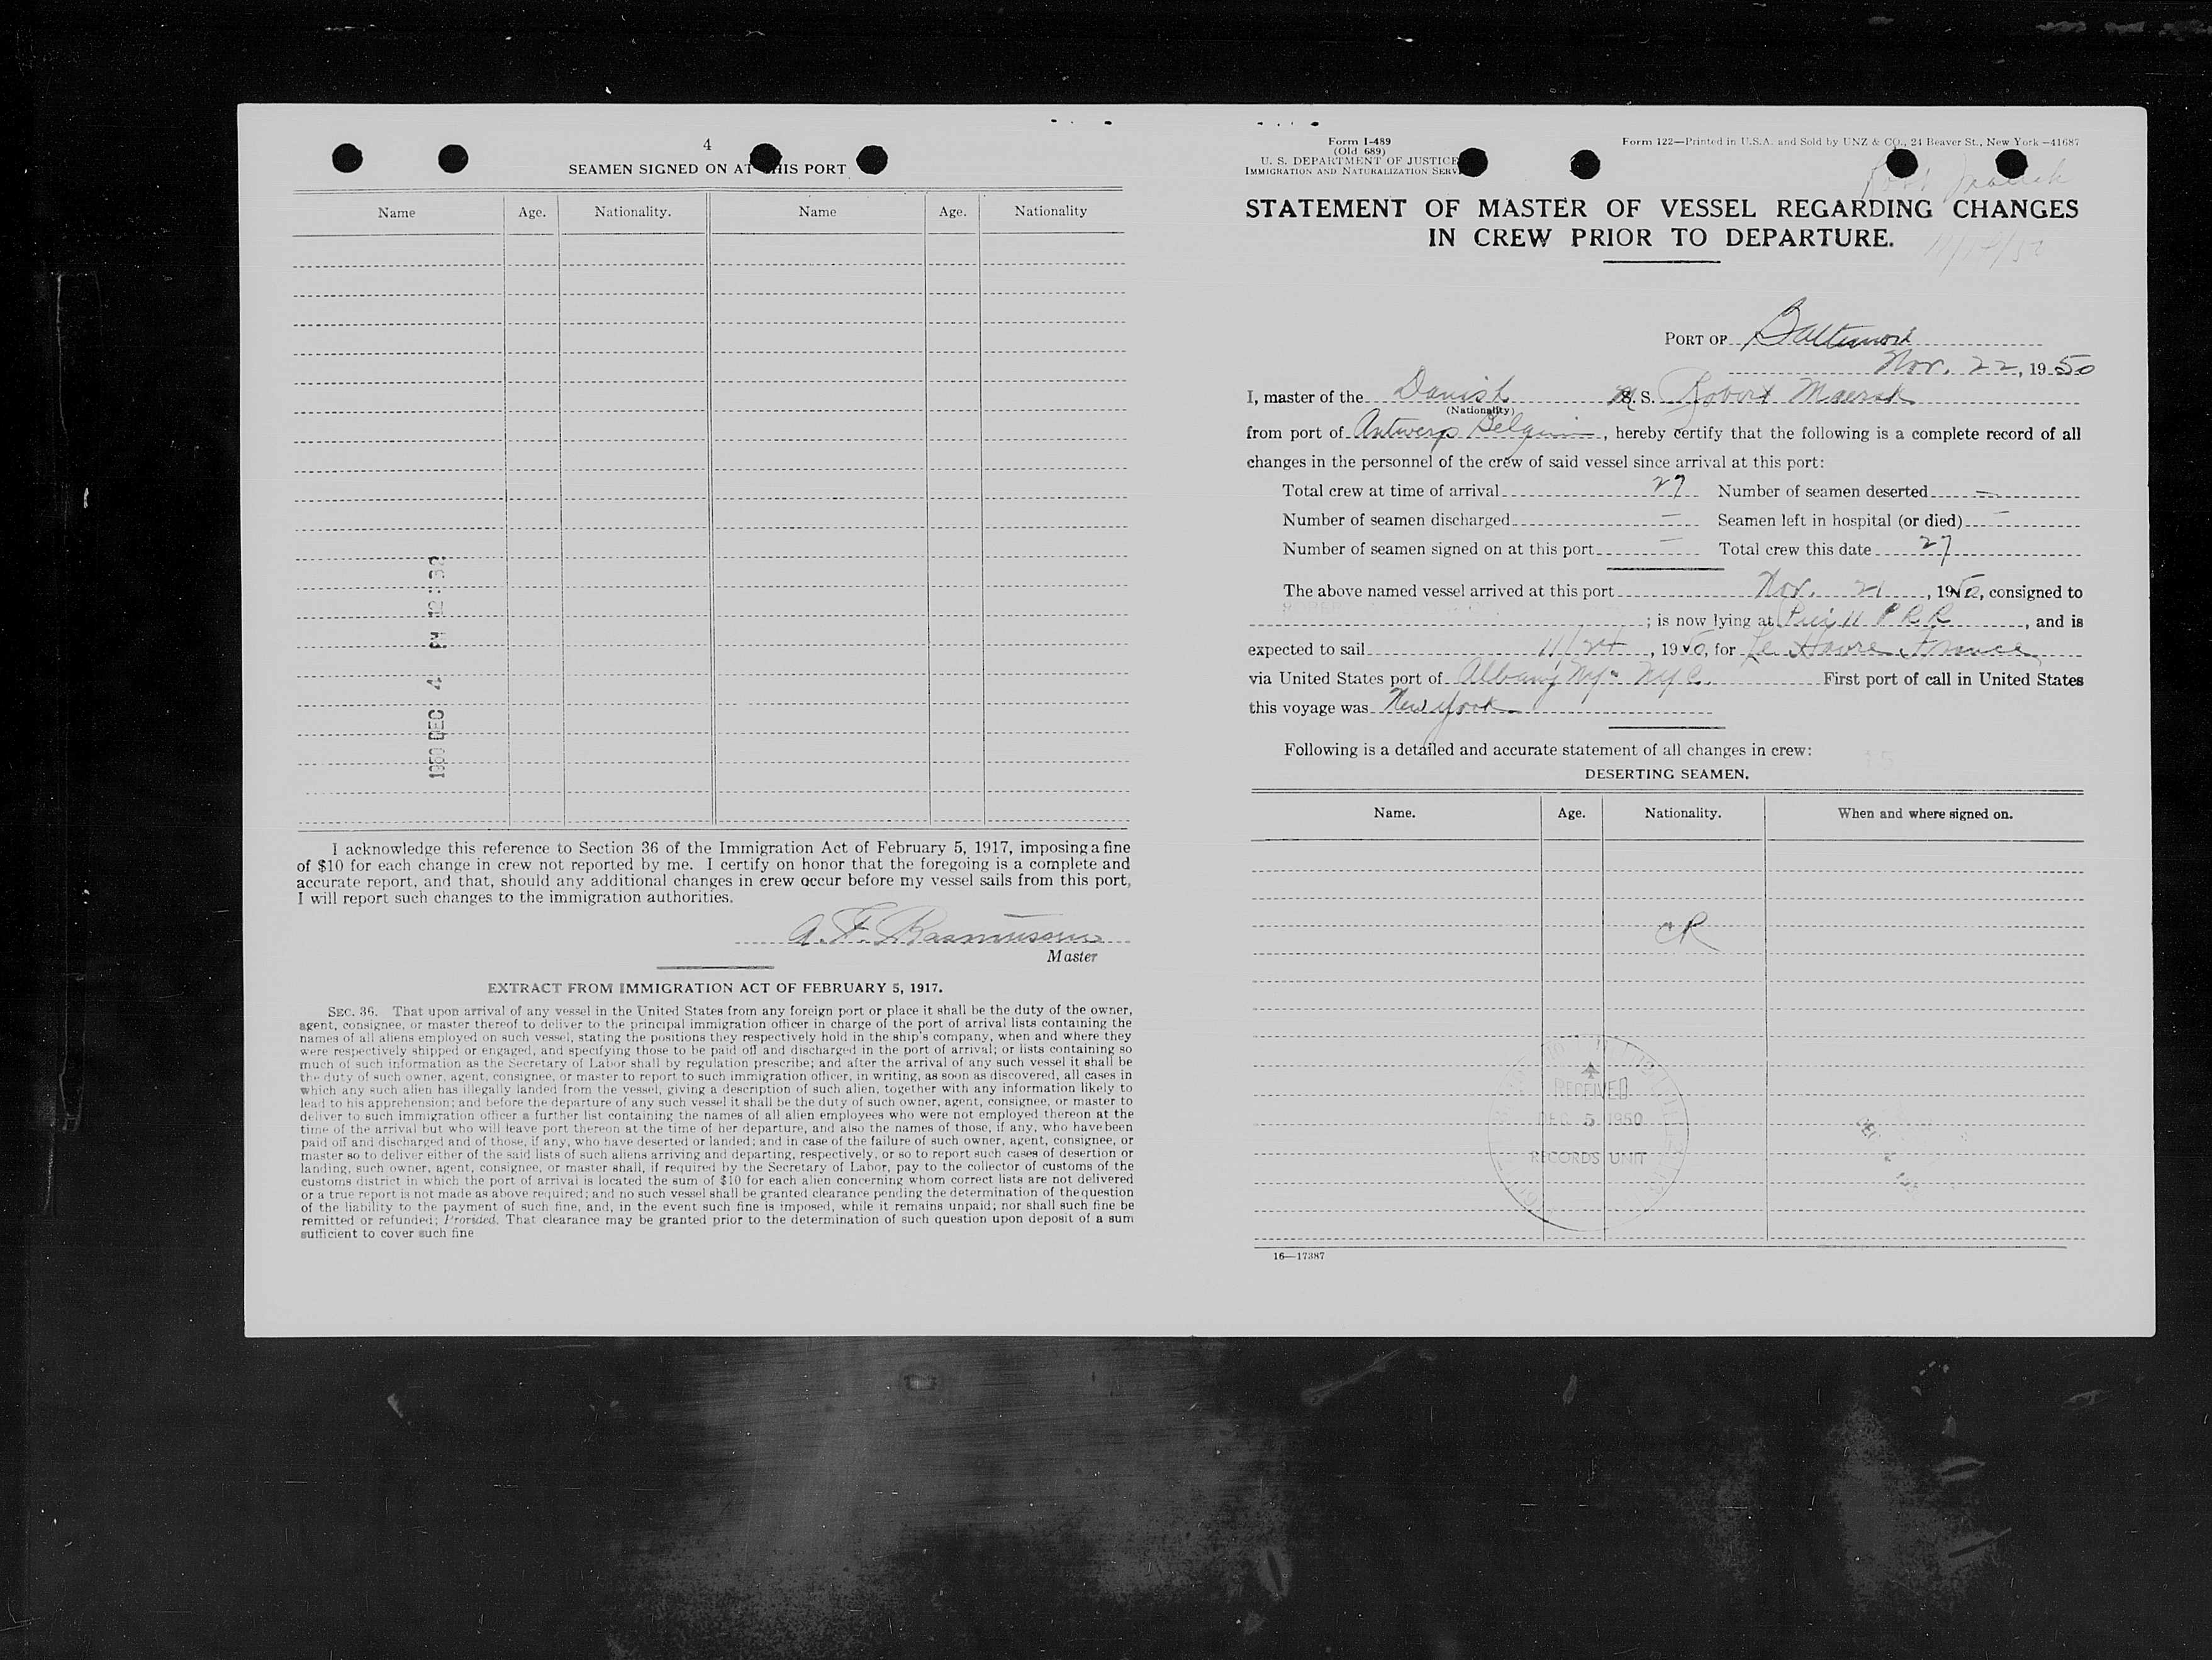 4
SEAMEN SIGNED ON AT THIS PORT
Name Age. Nationality. Name Age. Nationality
1950 DEC 4 PM 12:32
I acknowledge this reference to Section 36 of the Immigration Act of February 5, 1917, imposing a fine
of $10 for each change in crew not reported by me. I certify on honor that the foregoing is a complete and
accurate report, and that, should any additional changes in crew occur before my vessel sails from this port,
I will report such changes to the immigration authorities.
A. F. Rasmussen
Master
EXTRACT FROM IMMIGRATION ACT OF FEBRUARY 5, 1917.
SEC. 36. That upon arrival of any vessel in the United States from any foreign port or place it shall be the duty of the owner,
agent, consignee, or master thereof to deliver to the principal immigration officer in charge of the port of arrival lists containing the
names of all aliens employed on such vessel, stating the positions they respectively hold in the ship's company, when and where they
were respectively shipped or engaged, and specifying those to be paid off and discharged in the port of arrival; or lists containing so
much of such information as the Secretary of Labor shall by regulation prescribe; and after the arrival of any such vessel it shall be
the duty of such owner, agent, consignee, or master to report to such immigration officer, in writing, as soon as discovered, all cases in
which any such alien has illegally landed from the vessel, giving a description of such alien, together with any information likely to
lead to his apprehension; and before the departure of any such vessel it shall be the duty of such owner, agent, consignee, or master to
deliver to such immigration officer a further list containing the names of all alien employees who were not employed thereon at the
time of the arrival but who will leave port thereon at the time of her departure, and also the names of those, if any, who have been
paid off and discharged and of those, if any, who have deserted or landed; and in case of the failure of such owner, agent, consignee, or
master so to deliver either of the said lists of such aliens arriving and departing, respectively, or so to report such cases of desertion or
landing, such owner, agent, consignee, or master shall, if required by the Secretary of Labor, pay to the collector of customs of the
customs district in which the port of arrival is located the sum of $10 for each alien concerning whom correct lists are not delivered
or a true report is not made as above required; and no such vessel shall be granted clearance pending the determination of the question
of the liability to the payment of such fine, and, in the event such fine is imposed, while it remains unpaid; nor shall such fine be
remitted or refunded; Provided, That clearance may be granted prior to the determination of such question upon deposit of a sum
sufficient to cover such fine
Form I-489
(Old 689)
U. S. DEPARTMENT OF JUSTICE
IMMIGRATION AND NATURALIZATION SERV
Form 122—Printed in U.S.A. and Sold by UNZ & CO., 24 Beaver St., New York—41687
STATEMENT OF MASTER OF VESSEL REGARDING CHANGES
IN CREW PRIOR TO DEPARTURE.
PORT OF Baltimore
Nov. 22, 1950
I, master of the Danish M. S. Robert Maersk
(Nationality)
from port of Antwerp Belgium, hereby certify that the following is a complete record of all
changes in the personnel of the crew of said vessel since arrival at this port:
Total crew at time of arrival 27 Number of seamen deserted —
Number of seamen discharged — Seamen left in hospital (or died) —
Number of seamen signed on at this port — Total crew this date 27
The above named vessel arrived at this port Nov. 21, 1950, consigned to
; is now lying at Pier 11 P R R, and is
expected to sail 11/24, 1950, for Le Havre France
via United States port of Albany Ny - NyC. First port of call in United States
this voyage was New York
Following is a detailed and accurate statement of all changes in crew:
DESERTING SEAMEN.
Name. Age. Nationality. When and where signed on.
CR
RECEIVED
DEC 5 1950
RECORDS UNIT
16—17387